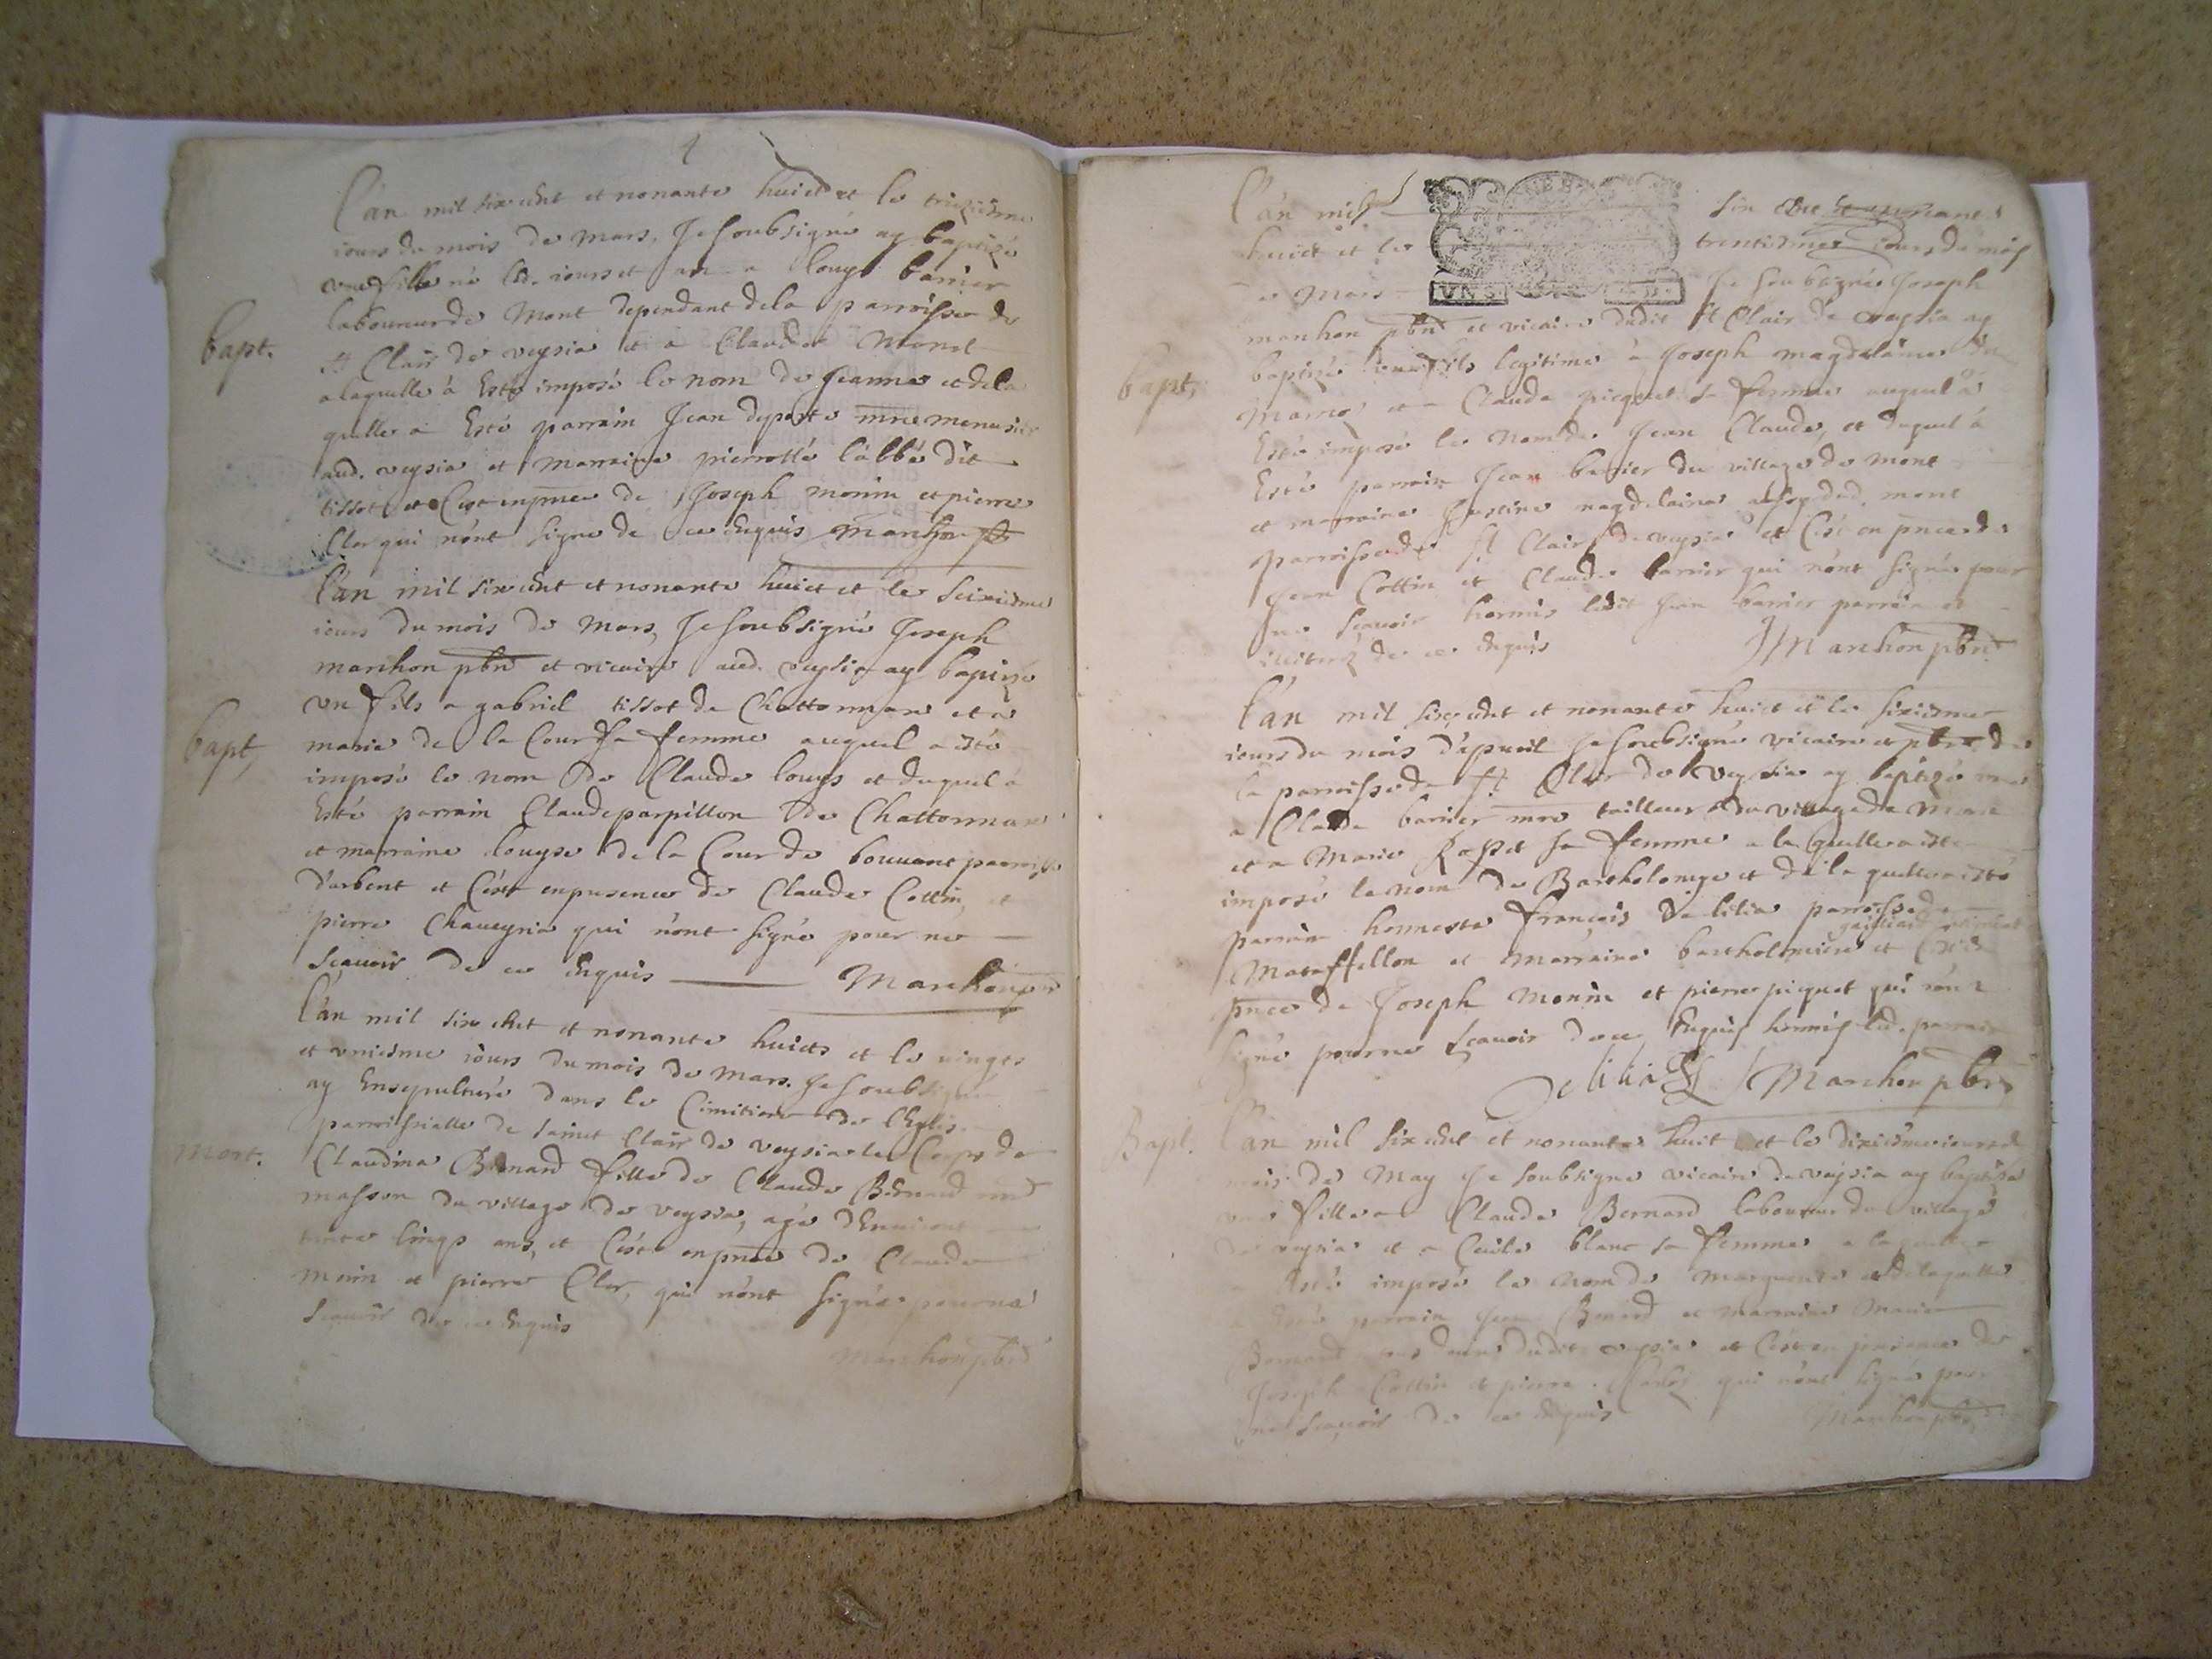 4
L'an mil six cent et nonante huict et le treiziesme
iours du mois de Mars, Je soubsigné ay baptizé
une fille né led. iours et an a louys barrier
laboureur de Mont dependant de la parroisse de
bapt.
St Clair de veysia et a Claudat Monet
a laquelle à Esté imposé le nom de Jeanne et de la
quelle a Esté parrain Jean deporte mre menusier
aud. veysia et marraine pierrotte l'abbé dit
tissot et C'est en pnce de Joseph monin et pierre
Cler qui n'ont signe de ce Enquis Marchon pbr
L'an mil six cent et nonante huict et le seiziesme
iours du mois de Mars, Je soubsigné Joseph
marchon pbre et vicaire aud. veysia ay baptizé
un fils a gabriel tissot de Chattonnax et a
bapt,
marie de la Cour sa femme auquel a esté
imposé le nom de Claude louys et duquel à
Esté parrain Claude parpillon de Chattonnax
et marraine louyse de la Cour de bouvent parroisse
d'arbent et C'est en presence de Claude Cottin, et
pierre Chaveyria qui n'ont signé pour ne
sçavoir de ce Enquis Marchon pbr
L'an mil six cent et nonante huict et le vingt
et uniesme iours du mois de Mars. Je soubsigné
ay Ensepulturé dans le Cimitiere de l'Eglise
parroissialle de sainct Clair de veysia le Corps de
Mort.
Claudina Bernard fille de Claude Bernard mre
masson du village de veysia, agé d'Environ
cinqs ans, et C'est en pnce de Claude
monin et pierre Cler, qui n'ont signé pour ne
sçavoir de ce Enquis
Marchon pbre
L'an mil six cent et nonante
huict et le trentiesme iours du mois
de Mars Je soubsigné Joseph
marchon pbre et vicaire dudit St Clair de veysia ay
bapt,
baptizé un fils legitime à Joseph magdelaine
et a Claude piquet sa femme auquel à
Esté imposé le nom de Jean Claude, et duquel à
Esté parrain Jean barrier du village de mont
et marraine Justine magdelaine aussy dud. mont
parroisse de St Clair de veysia et C'est en pnce de
Jean Cottin et Claude barrier qui n'ont signé pour
ne sçavoir hormis ledit Jean barrier parrain et
de ce Enquis
J Marchon pbre
L'an mil six cent et nonante huict et le sixiesme
iours du mois d'apvril Je soubsigné vicaire et pbre de
la parroisse de St Clair de Veysia ay baptizé une
a Claude barrier mre tailleur du village de Mont
et a Marie Rapet sa femme a la quelle a esté
imposé le nom de Bartholomye et de la quelle a esté
parrain honneste françois de lilia parroisse de
Mataffellon et marraine bartholomiere et C'est
pnce de Joseph Monin et pierre piquet qui n'ont
signé pour ne sçavoir de ce Enquis hormis led. parrain
Marchon pbre
Bapt.
L'an mil six cent et nonante huit et le dixiesme iours du
mois de May Je soubsigné vicaire de veysia ay baptizé
une fille a Claude Bernard laboureur du village
de veysia et a Cecile blanc sa femme a laquelle
a Esté imposé le nom de Marguerite et de laquelle
a Esté parrain Jean Bernard et marraine Marie
Bernard tous deux dudit veysia et C'est en presence de
Joseph Cottin et pierre qui n'ont signé pour
ne sçavoir de ce Enquis Marchon pbre